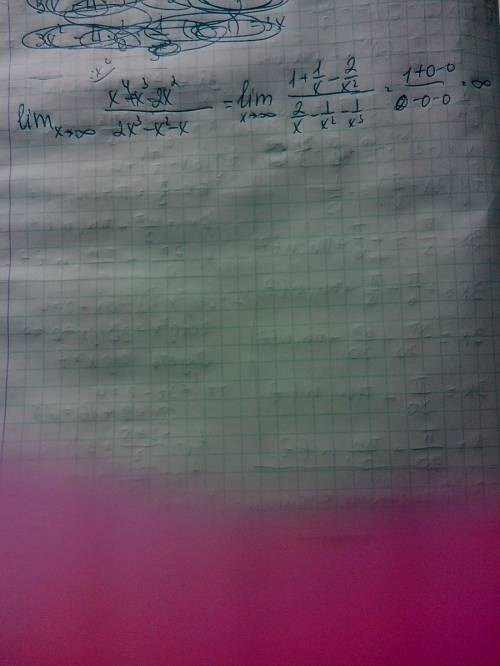 :x⁴
lim x→∞ (x⁴+x³-2x²)/(2x³-x²-x) = lim x→∞ (1+1/x-2/x²)/(2/x-1/x²-1/x³) = (1+0-0)/(0-0-0) = ∞